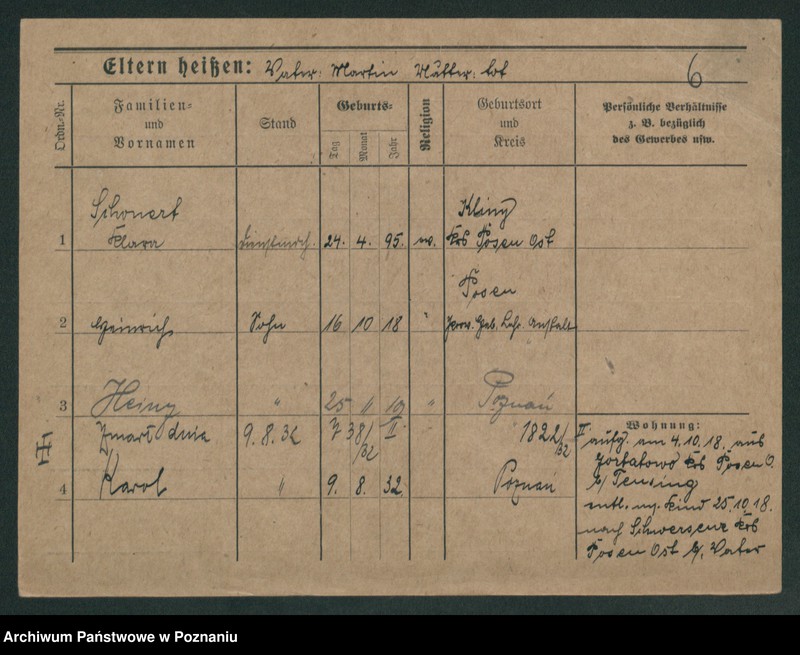 Eltern heißen: Vater: Martin Mutter: tot
6
Ordn.-Nr.
Familien-
und
Vornamen
Stand
Geburts-
Tag
Monat
Jahr
Religion
Geburtsort
und
Kreis
Persönliche Verhältnisse
z. B. bezüglich
des Gewerbes usw.
Schonert
Klara
1
24. 4. 95.
Krs Posen Ost
Posen
2 Heinrich Sohn 16 10 18 "
Prov. Heb. Lehr. Anstalt
3 " 25 " 19 "
Poznań
Zmarł dnia 9.8.32 738/32 II 1822/32 II
4 Karol " 9. 8. 32. Poznań
Wohnung:
aufg. am 4.10.18. aus
Krs Posen O.
b/
entl. m. Kind 25.10.18.
nach Schwersenz Krs
Posen Ost b/. Vater
Archiwum Państwowe w Poznaniu